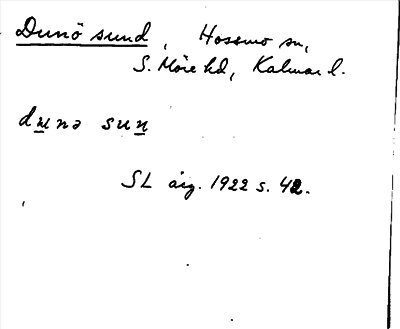 Dunö sund, Hossmo sn,
S. Möre hd, Kalmar l.
dunə sun
SL årg. 1922 s. 42.